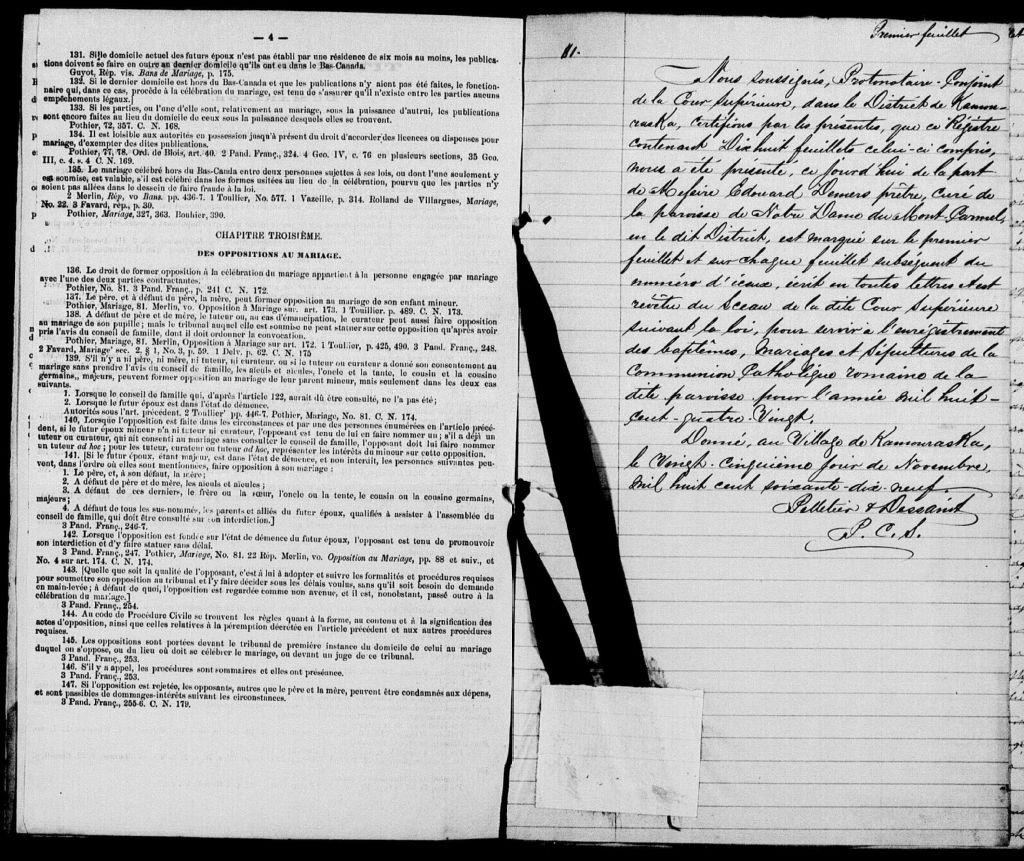 — 4 —
131. Si le domicile actuel des futurs époux n'est pas établi par une résidence de six mois au moins, les publica-
tions doivent se faire en outre au dernier domicile qu'ils ont eu dans le Bas-Canada.
Guyot, Rép. vis. Bans de Mariage, p. 175.
132. Si le dernier domicile est hors du Bas-Canada et que les publications n'y aient pas été faites, le fonction-
naire qui, dans ce cas, procède à la célébration du mariage, est tenu de s'assurer qu'il n'existe entre les parties aucuns
empêchements légaux.]
133. Si les parties, ou l'une d'elle sont, relativement au mariage, sous la puissance d'autrui, les publications
sont encore faites au lieu du domicile de ceux sous la puissance desquels elles se trouvent.
Pothier, 72, 357. C. N. 168.
134. Il est loisible aux autorités en possession jusqu'à présent du droit d'accorder des licences ou dispenses pour
mariage, d'exempter des dites publications.
Pothier, 77, 78. Ord. de Blois, art. 40. 2 Pand. Franç., 324. 4 Geo. IV, c. 76 en plusieurs sections, 35 Geo.
III, c. 4. s. 4 C. N. 169.
135. Le mariage célébré hors du Bas-Canada entre deux personnes sujettes à ses lois, ou dont l'une seulement y
est soumise, est valable, s'il est célébré dans les formes usitées au lieu de la célébration, pourvu que les parties n'y
soient pas allées dans le dessein de faire fraude à la loi.
2 Merlin, Rép, vo Bans. pp. 436-7. 1 Toullier, No. 577. 1 Vazeille, p. 314. Rolland de Villargues, Mariage,
No. 22. 3 Favard, rép., p. 30.
Pothier, Mariage, 327, 363. Bouhier, 390.
CHAPITRE TROISIÈME.
DES OPPOSITIONS AU MARIAGE.
136. Le droit de former opposition à la célébration du mariage appartient à la personne engagée par mariage
avec l'une des deux parties contractantes.
Pothier, No. 81. 3 Pand. Franç., p. 241 C. N. 172.
137. Le père, et à défaut du père, la mère, peut former opposition au mariage de son enfant mineur.
Pothier, Mariage, 81. Merlin, vo. Opposition à Mariage sur. art. 173. 1 Touillier, p. 489. C. N. 173.
138. A défaut de père et de mère, le tuteur, ou, au cas d'émancipation, le curateur peut aussi faire opposition
au mariage de son pupille; mais le tribunal auquel elle est soumise ne peut statuer sur cette opposition qu'après avoir
pris l'avis du conseil de famille, dont il doit ordonner la convocation.
Pothier, Mariage, 81. Merlin, Opposition à Mariage sur art. 172. 1 Toulier, p. 425, 490. 3 Pand. Franç., 248.
2 Favard, Mariage' sec. 2, § 1, No. 3, p. 59. 1 Delv. p. 62. C. N. 175
139. S'il n'y a ni père, ni mère, ni tuteur, ni curateur, ou si le tuteur ou curateur a donné son consentement au
mariage sans prendre l'avis du conseil de famille, les aïeuls et aïeules, l'oncle et la tante, le cousin et la cousine
germains, majeurs, peuvent former opposition au mariage de leur parent mineur, mais seulement dans les deux cas
suivants.
1. Lorsque le conseil de famille qui, d'après l'article 122, aurait dû être consulté, ne l'a pas été;
2. Lorsque le futur époux est dans l'état de démence.
Autorités sous l'art. précédent. 2 Toullier' pp. 446-7. Pothier, Mariage, No. 81. C. N. 174.
140. Lorsque l'opposition est faite dans les circonstances et par une des personnes énumérées en l'article précé-
dent, si le futur époux mineur n'a ni tuteur ni curateur, l'opposant est tenu de lui en faire nommer un; s'il a déjà un
tuteur ou curateur, qui ait consenti au mariage sans consulter le conseil de famille, l'opposant doit lui faire nommer
un tuteur ad hoc; pour les tuteur, curateur ou tuteur ad hoc, représenter les intérêts du mineur sur cette opposition.
141. [Si le futur époux, étant majeur, est dans l'état de démence, et non interdit, les personnes suivantes peu-
vent, dans l'ordre où elles sont mentionnées, faire opposition à son mariage:
1. Le père, et, à son défaut, la mère;
2. A défaut de père et de mère, les aïeuls et aïeules;
3. A défaut de ces derniers, le frère ou la sœur, l'oncle ou la tente, le cousin ou la cousine germains,
majeurs;
4. A défaut de tous les sus-nommés, les parents et alliés du futur époux, qualifiés à assister à l'assemblée du
conseil de famille, qui doit être consulté sur son interdiction.]
3 Pand. Franç., 246-7.
142. Lorsque l'opposition est fondée sur l'état de démence du futur époux, l'opposant est tenu de promouvoir
son interdiction et d'y faire statuer sans délai.
3 Pand. Franç., 247. Pothier, Mariage, No. 81. 22 Rép. Merlin, vo. Opposition au Mariage, pp. 88 et suiv., et
No. 4 sur art. 174. C. N. 174.
143. [Quelle que soit la qualité de l'opposant, c'est à lui à adopter et suivre les formalités et procédures requises
pour soumettre son opposition au tribunal et l'y faire décider sous les délais voulus, sans qu'il soit besoin de demande
en main-levée; à défaut de quoi, l'opposition est regardée comme non avenue, et il est, nonobstant, passé outre à la
célébration du mariage.]
3 Pand. Franç., 254.
144. Au code de Procédure Civile se trouvent les règles quant à la forme, au contenu et à la signification des
actes d'opposition, ainsi que celles relatives à la péremption décrétée en l'article précédent et aux autres procédures
requises.
145. Les oppositions sont portées devant le tribunal de première instance du domicile de celui au mariage
duquel on s'oppose, ou du lieu où doit se célébrer le mariage, ou devant un juge de ce tribunal.
3 Pand. Franç., 253.
146. S'il y a appel, les procédures sont sommaires et elles ont préséance.
3 Pand. Franç., 253.
147. Si l'opposition est rejetée, les opposants, autres que le père et la mère, peuvent être condamnés aux dépens,
et sont passibles de dommages-intérêts suivant les circonstances.
3 Pand. Franç., 255-6. C. N. 179.
Premier feuillet
Nous soussignés, Protonotaire-Conjoint
de la Cour Supérieure, dans le District de Kamou-
raska, certifions par les présentes, que ce Régistre
contenant Dix huit feuillets celui-ci compris,
nous a été présenté, ce jourd'hui de la part
de Messire Edouard Demers prêtre, curé de
la paroisse de Notre Dame du Mont-Carmel,
en le dit District, est marqué sur le premier
feuillet et sur chaque feuillet subséquent du
numéro d'iceux, écrit en toutes lettres et est
revêtu du Sceau de la dite Cour Supérieure
suivant la loi, pour servir à l'enrégistrement
des baptêmes, Mariages et Sépultures de la
Communion Catholique romaine de la
dite paroisse pour l'année mil huit-
cent-quatre-Vingt.
Donné, au Village de Kamouraska,
le Vingt-cinquième jour de Novembre
mil huit cent soixante-dix-neuf.
Pelletier & Dessaint
P. C. S.